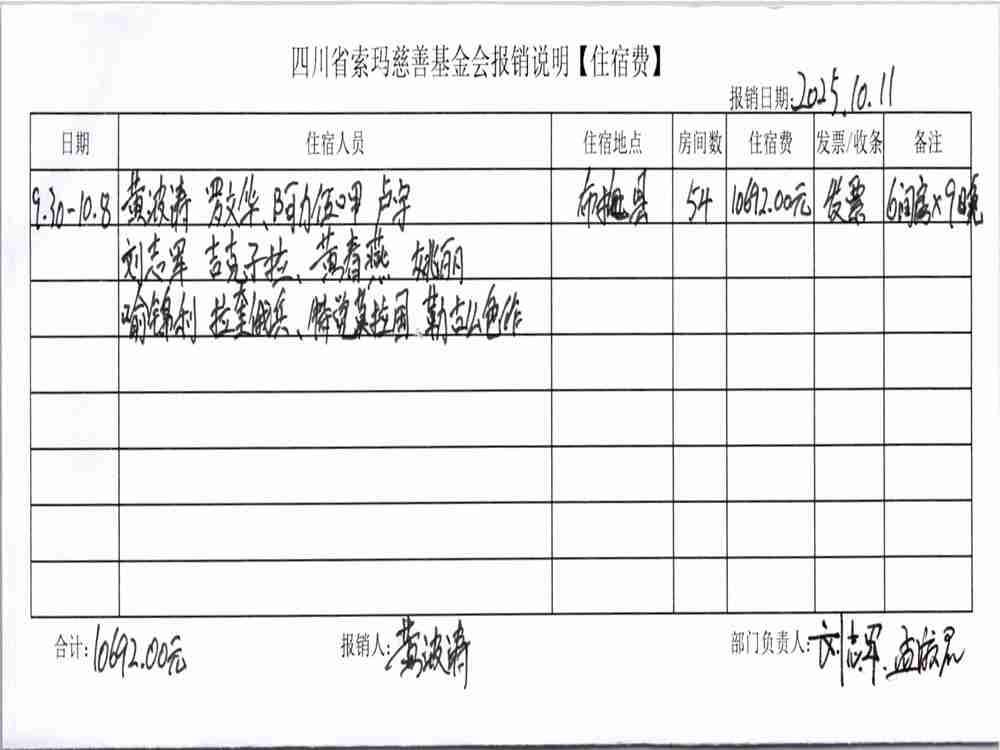 四川省索玛慈善基金会报销说明【住宿费】
报销日期:2025.10.11
日期 住宿人员 住宿地点 房间数 住宿费 发票/收条 备注
9.30-10.8 黄波涛 罗文华、阿力伍呷 卢宇 布拖县 54 10692.00元 发票 6间房×9晚
刘志军 吉克子拉、黄春燕 姚丽
喻锦利 拉奎俄兵、 勒古么色作
合计:10692.00元 报销人:黄波涛 部门负责人:刘志军、孟